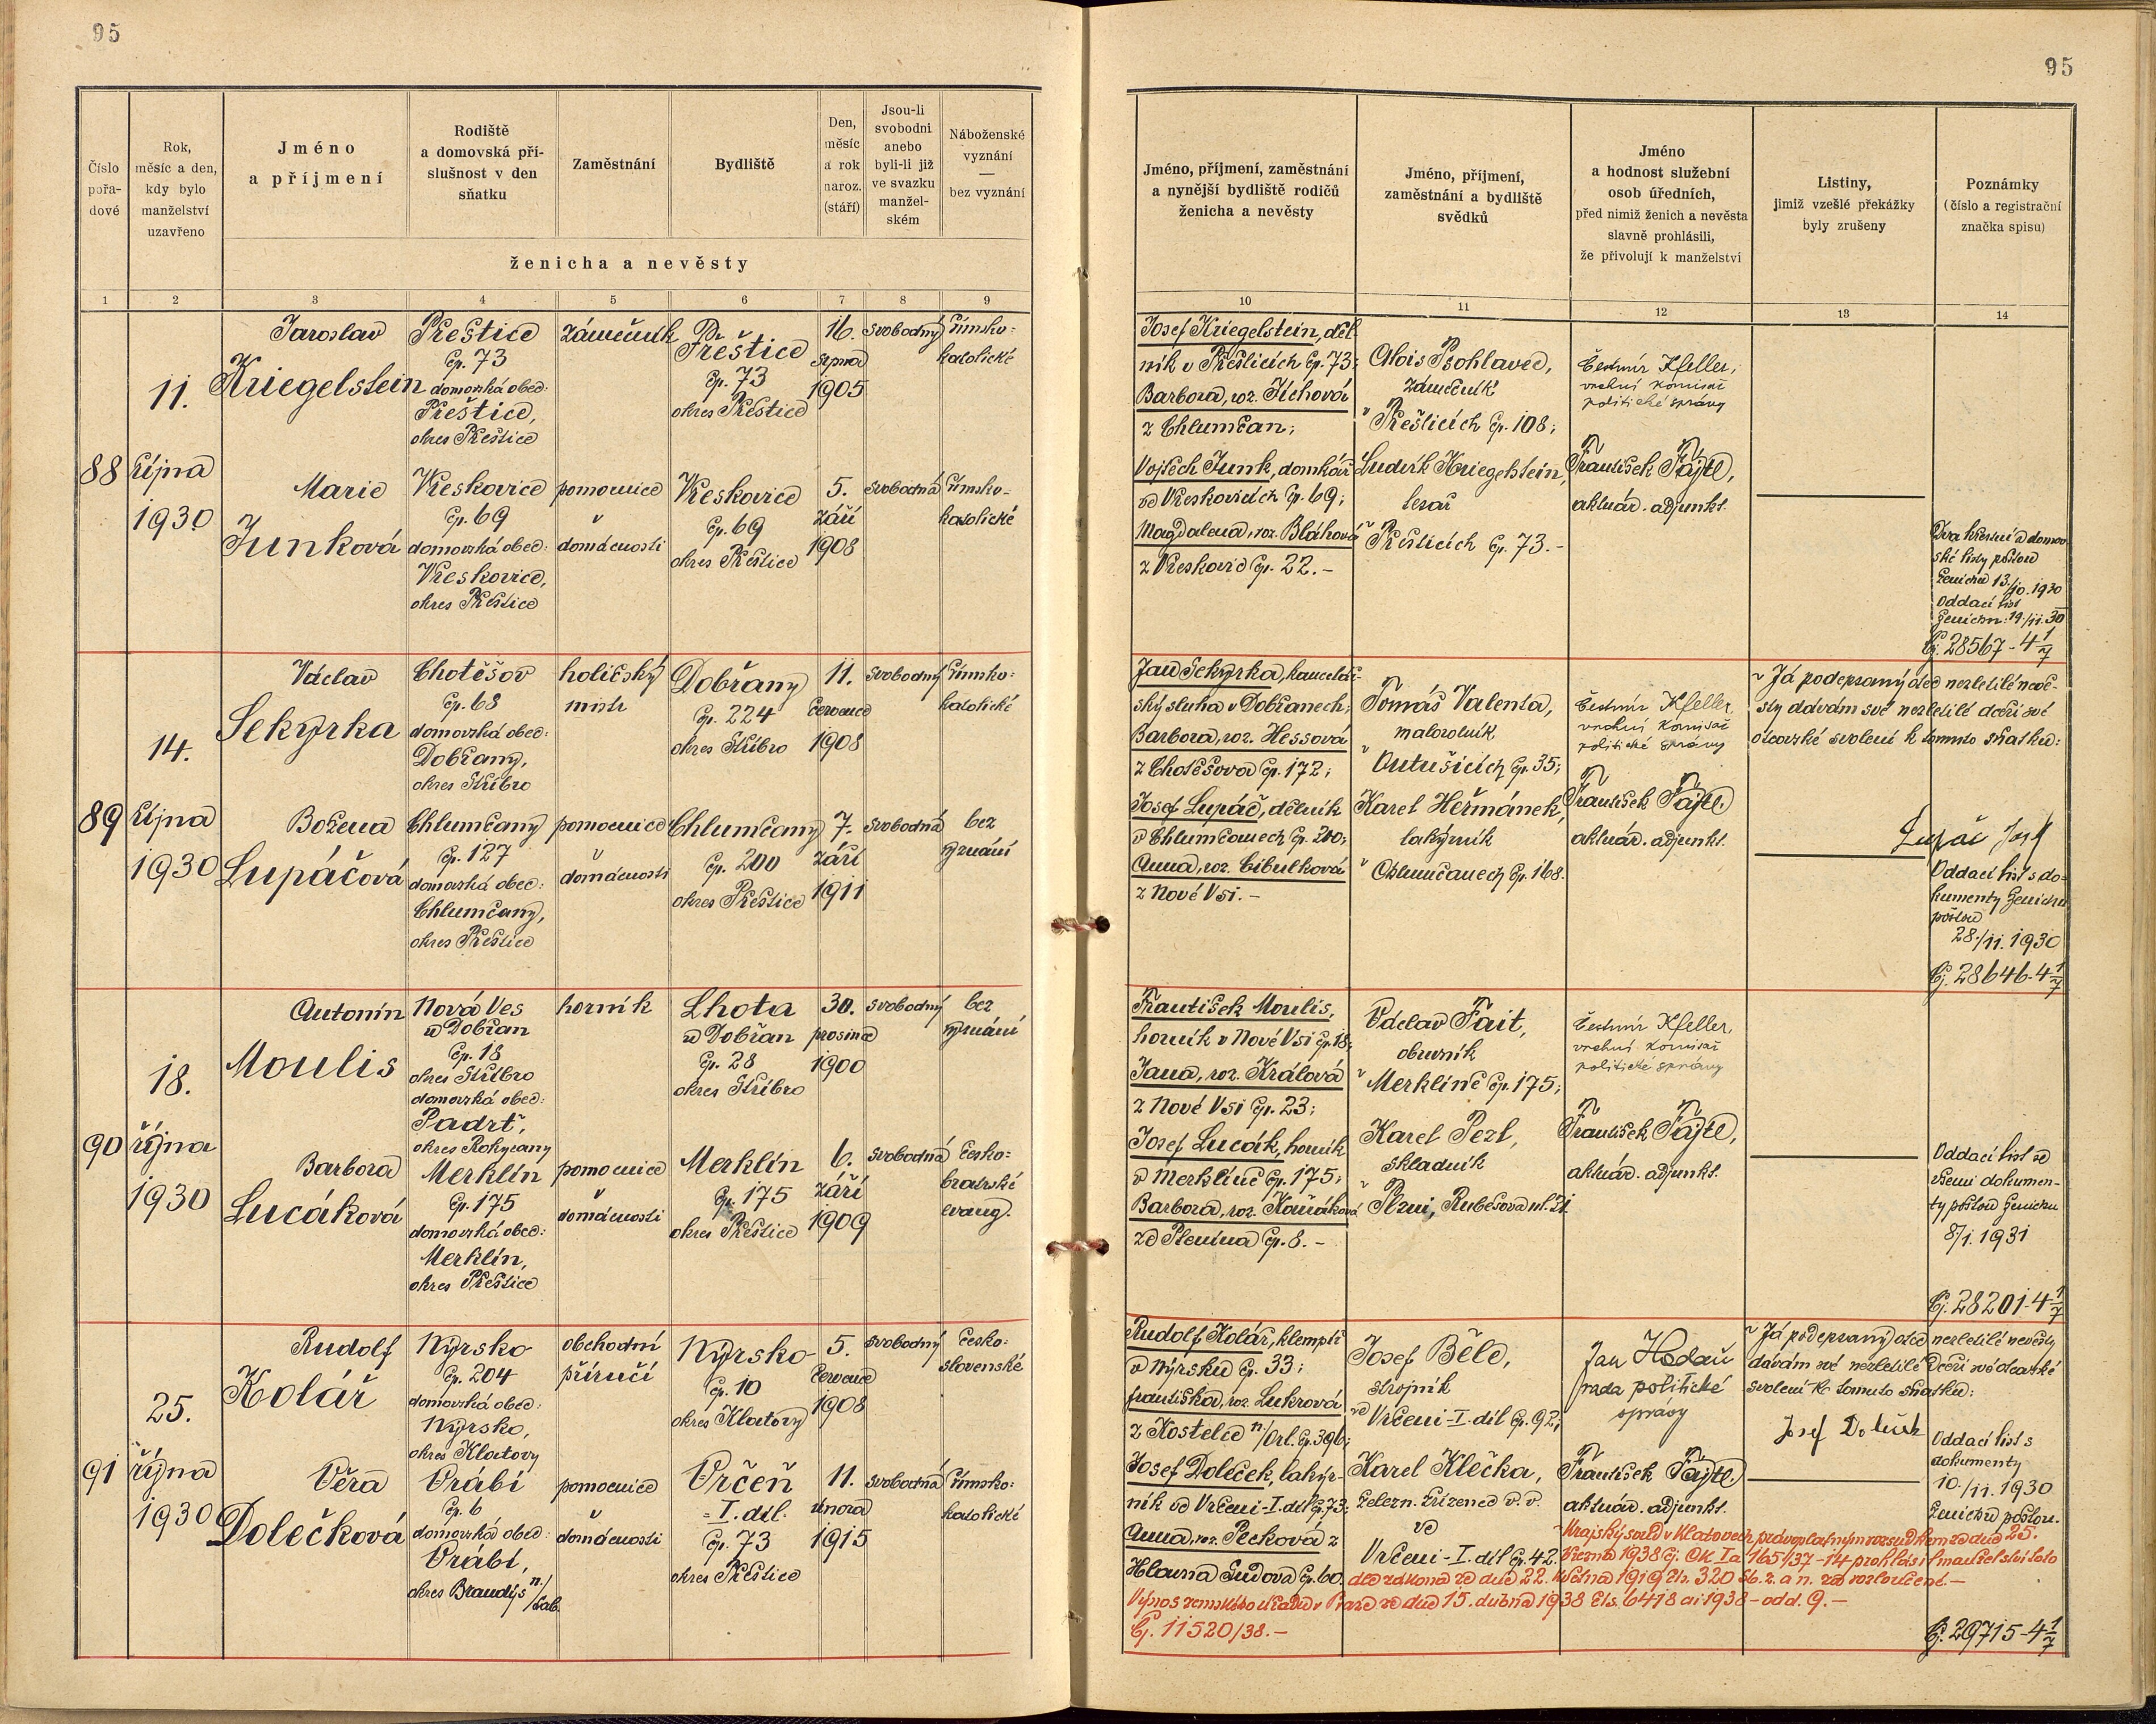 95
95
Číslo pořa- dové
Rok, měsíc a den, kdy bylo manželství uzavřeno
Jméno a příjmení
Rodiště a domovská pří- slušnost v den sňatku
Zaměstnání
Bydliště
Den, měsíc a rok naroz. (stáří)
Jsou-li svobodni anebo byli-li již ve svazku manžel- ském
Náboženské vyznání — bez vyznání
ženicha a nevěsty
Jméno, příjmení, zaměstnání a nynější bydliště rodičů ženicha a nevěsty
Jméno, příjmení, zaměstnání a bydliště svědků
Jméno a hodnost služební osob úředních, před nimiž ženich a nevěsta slavně prohlásili, že přivolují k manželství
Listiny, jimiž vzešlé překážky byly zrušeny
Poznámky (číslo a registrační značka spisu)
1 2 3 4 5 6 7 8 9
10 11 12 13 14
88
11.
října
1930
Jaroslav
Kriegelstein
Přeštice
čp. 73
domovská obec:
Přeštice,
okres Přeštice
zámečník
Přeštice
čp. 73
okres Přeštice
16.
srpna
1905
svobodný
římsko-
katolické
Marie
Junková
Vřeskovice
čp. 69
domovská obec:
Vřeskovice,
okres Přeštice
pomocnice
v
domácnosti
Vřeskovice
čp. 69
okres Přeštice
5.
září
1908
svobodná
římsko-
katolické
Josef Kriegelstein, děl-
ník v Přešticích čp. 73;
Barbora, roz. Jíchová
z Chlumčan;
Vojtěch Junk, domkář
ve Vřeskovicích čp. 69;
Magdalena, roz. Bláhová
z Vřeskovic čp. 22.-
Alois Psohlavec,
zámečník
v Přešticích čp. 108;
Ludvík Kriegelstein,
tesař
v Přešticích čp. 73.-
Čestmír Kfeller,
vrchní komisař
politické správy
František Fajtl,
aktuár. adjunkt.
Dva křestní a domov-
ské listy poštou
ženichu 13./10. 1930
Oddací list
ženichu: 19./11. 30
Čj. 28567-4 1/7
89
14.
října
1930
Václav
Sekyrka
Chotěšov
čp. 68
domovská obec:
Dobřany,
okres Stříbro
holičský
mistr
Dobřany
čp. 224
okres Stříbro
11.
července
1908
svobodný
římsko-
katolické
Božena
Lupáčová
Chlumčany
čp. 127
domovská obec:
Chlumčany,
okres Přeštice
pomocnice
v
domácnosti
Chlumčany
čp. 200
okres Přeštice
7.
září
1911
svobodná
bez
vyznání
Jan Sekyrka, kancelář-
ský sluha v Dobřanech;
Barbora, roz. Hessová
z Chotěšova čp. 172;
Josef Lupáč, dělník
v Chlumčanech čp. 200;
Anna, roz. Cibulková
z Nové Vsi.-
Tomáš Valenta,
malorolník
v Outušicích čp. 35;
Karel Heřmánek,
lakýrník
v Chlumčanech čp. 168.
Čestmír Kfeller,
vrchní komisař
politické správy
František Fajtl
aktuár. adjunkt.
Já podepsaný otec nezletilé nevě-
sty dávám své nezletilé dceři své
otcovské svolení k tomuto sňatku:
Lupáč Josef
Oddací list s do-
kumenty ženichu
poštou
28./11. 1930
Čj. 28646-4 1/7
90
18.
října
1930
Antonín
Moulis
Nová Ves
u Dobřan
čp. 18
okres Stříbro
domovská obec:
Padrť,
okres Rokycany
horník
Lhota
u Dobřan
čp. 28
okres Stříbro
30.
prosince
1900
svobodný
bez
vyznání
Barbora
Lucáková
Merklín
čp. 175
domovská obec:
Merklín,
okres Přeštice
pomocnice
v
domácnosti
Merklín
čp. 175
okres Přeštice
6.
září
1909
svobodná
česko-
bratrské
evang.
František Moulis,
horník v Nové Vsi čp. 18;
Jana, roz. Králová
z Nové Vsi čp. 23;
Josef Lucák, horník
v Merklíně čp. 175;
Barbora, roz. Koňáková
ze Ptenína čp. 8.-
Václav Fait,
obuvník
v Merklíně čp. 175;
Karel Pezl,
skladník
v Plzni, Rubešova ul. 21.
Čestmír Kfeller,
vrchní komisař
politické správy
František Fajtl,
aktuár. adjunkt.
Oddací list se
všemi dokumen-
ty poštou ženichu
8./1. 1931
Čj. 28201-4 1/7
91
25.
října
1930
Rudolf
Kolář
Nýrsko
čp. 204
domovská obec:
Nýrsko,
okres Klatovy
obchodní
příručí
Nýrsko
čp. 10
okres Klatovy
5.
července
1908
svobodný
česko-
slovenské
Věra
Dolečková
Vrábí
čp. 6
domovská obec:
Vrábí,
okres Brandýs n./Lab.
pomocnice
v
domácnosti
Vrčeň
- I. díl.
čp. 73
okres Přeštice
11.
února
1915
svobodná
římsko-
katolické
Rudolf Kolář, klempíř
v Nýrsku čp. 33;
Františka, roz. Lukrová
z Kostelce n./Orl. čp. 396;
Josef Doleček, lakýr-
ník ve Vrčeni-I. díl čp. 73;
Anna, roz. Pecková z
Hlavna Sudova čp. 60.
Josef Běle,
strojník
ve Vrčeni-I. díl čp. 92;
Karel Klečka,
železn. zřízenec v. v.
ve
Vrčeni-I. díl čp. 42.
Jan Hodaň
rada politické
správy
František Fajtl
aktuár. adjunkt.
Já podepsaný otec nezletilé nevěsty
dávám své nezletilé dceři své otcovské
svolení k tomuto sňatku:
Josef Doleček
Oddací list s
dokumenty
10./11. 1930
ženichu poštou.
Krajský soud v Klatovech právoplatným rozsudkem ze dne 25.
března 1938 čj. Ck Ia 165/37-14 prohlásil manželství toto
dle zákona ze dne 22. května 1919 čís. 320 Sb. z. a n. za rozloučené.-
Výnos zemského úřadu v Praze ze dne 15. dubna 1938 čís. 6418 ai 1938-odd. 9.-
Čj. 11520/38.-
Čj. 29715-4 1/7